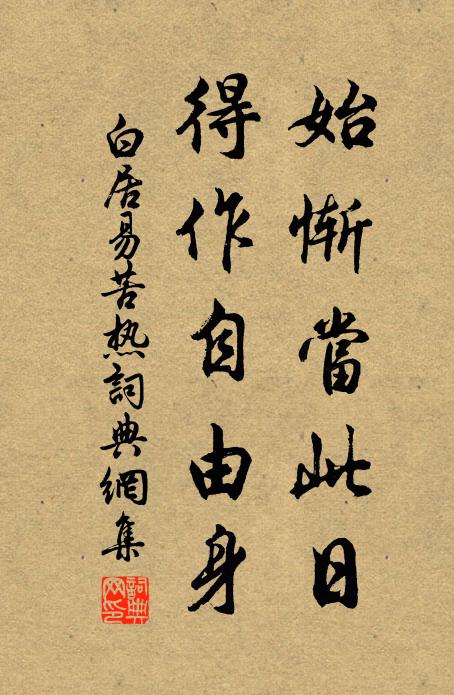 始慚當此日
得作自由身
白居易苦热詞典網集
詞典
网印